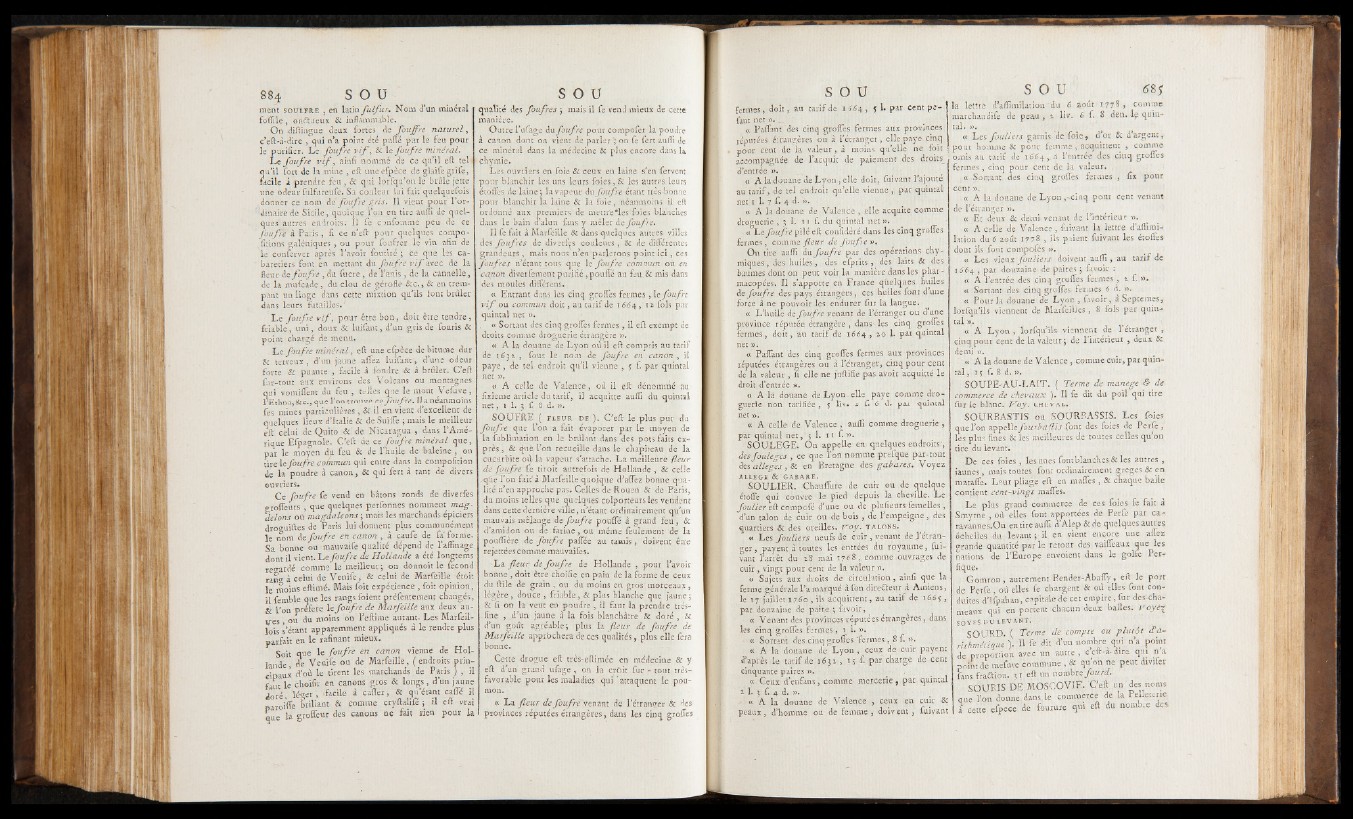 884 S O U
ment SOULFRE, en latin sulfur. Nom d'un minéral
fossile, onctueux & inflammable.
On distingue deux sortes de souffre naturel,
c'est-à-dire, qui n'a point été passé par le feu pour
le purifier. Le soufre vif, & le soufre minéral.
Le soufre vif, ainsi nommé de ce qu'il est tel
qu'il sort de la mine, est une espèce de glaise grise,
facile à prendre feu, & qui lorsqu'on le brûle jette
une odeur sulfureuse. Sa couleur lui fait quelquefois
donner ce nom de soufre gris. Il vient pour l'or-
dinaire de Sicile, quoique l'on en tire aussi de quel-
ques autres endroits. Il se consomme peu de ce
soufre à Paris, si ce n'est pour quelques compo-
sitions galéniques, ou pour soufrer le vin afin de
le conserver après l'avoir soutiré ; ce que les ca-
baretiers font en mettant du soufre vif avec de la
fleur de soufre, du sucre, de l'anis, de la cannelle,
de la muscade, du clou de gérofle &c., & en trem-
pant un linge dans cette mixtion qu'ils font brûler
dans leurs futailles.
Le soufre vif, pour être bon, doit être tendre,
friable, uni, doux & luisant, d'un gris de souris &
point chargé de menu.
Le soufre minéral, est une espèce de bitume dur
& terreux, d'un jaune assez luisant, d'une odeur
forte & puante, facile à fondre & à brûler. C'est
sur-tout aux environs des Volcans ou montagnes
qui vomissent du feu, telles que le mont Vésuve,
l'Ethna, &c., que l'on trouve ce soufre. Il a néanmoins
ses mines particulières, & il en vient d'excellent de
quelques lieux d'Italie & de Suisse ; mais le meilleur
est celui de Quito & de Nicaragua, dans l'Amé-
rique Espagnole. C'est de ce soufre minéral que,
par le moyen du feu & de l'huile de baleine, on
tire le soufre commun qui entre dans la composition
de la poudre à canon, & qui sert à tant de divers
ouvriers.
Ce soufre se vend en bâtons ronds de diverses
grosseurs, que quelques personnes nomment mag-
delons ou magdaleons ; mais les marchands épiciers
droguistes de Paris lui donnent plus communément
le nom de soufre en canon, à cause de sa forme.
Sa bonne ou mauvaise qualité dépend de l'affinage
dont il vient. Le soufre de Hollande a été longtems
regardé comme le meilleur ; on donnoit le second
rang à celui de Venise, & celui de Marseille étoit
le moins estimé. Mais soit expérience, soit opinion,
il semble que les rangs soient présentement changés,
& l'on préfere le soufre de Marseille aux deux au-
tres, ou du moins on l'estime autant. Les Marseil-
lois s'étant apparemment appliqués à le rendre plus
parfait en le rafinant mieux.
Soit que le soufre en canon vienne de Hol-
lande, de Venise ou de Marseille, (endroits prin-
cipaux d'où le tirent les marchands de Paris), il
faut le choisir en canons gros & longs, d'un jaune
doré, léger, facile à casser, & qu'étant cassé il
paroisse brillant & comme crystalisé ; il est vrai
que la grosseur des canons ne fait rien pour la
S O U
qualité des soufres ; mais il se vend mieux de cette
manière.
Outre l'usage du soufre pour composer la poudre
à canon dont on vient de parler ; on se sert aussi de
ce minéral dans la médecine & plus encore dans la
chymie.
Les ouvriers en soie & ceux en laine s'en servent
pour blanchir les uns leurs soies, & les autres leurs
étoffes de laine ; la vapeur du soufre étant très-bonne
pour blanchir la laine & la soie, néanmoins il est
ordonné aux premiers de mettre les soies blanches
dans le bain d'alun sans y mêler de soufre.
Il se fait à Marseille & dans quelques autres villes
des soufres de diverses couleurs, & de différentes
grandeurs, mais nous n'en parlerons point ici, ces
soufres n'étant tous que le soufre commun ou en
canon diversement purifié, poussé au feu & mis dans
des moules différens.
« Entrant dans les cinq grosses fermes, le soufre
vif ou commun doit, au tarif de 1664, 12 sols par
quintal net ».
« Sortant des cinq grosses fermes, il est exempt de
droits comme droguerie étrangère ».
« A la douane de Lyon où il est compris au tarif
de 1632, sous le nom de soufre en canon, il
paye, de tel endroit qu'il vienne, 5 s. par quintal
net ».
« A celle de Valence, où il est dénommé au
sixième article du tarif, il acquitte aussi du quintal
net, 1 l. 3 s. 8 d. ».
SOUFRE ( FLEUR DE ). C'est le plus pur du
soufre que l'on a fait évaporer par le moyen de
la sublimation en le brûlant dans des pots faits ex-
près, & que l'on recueille dans le chapiteau de la
cucurbite où la vapeur s'attache. La meilleure fleur
de soufre se tiroit autrefois de Hollande, & celle
que l'on fait à Marseille quoique d'assez bonne qua-
lité n'en approche pas. Celles de Rouen & de Paris,
du moins telles que quelques colporteurs les vendent
dans cette dernière ville, n'étant ordinairement qu'un
mauvais mêlange de soufre poussé à grand feu, &
d'amidon ou de farine, ou même seulement de la
poussière de soufre passée au tamis, doivent être
rejettées comme mauvaises.
La fleur de soufre de Hollande, pour l'avoir
bonne, doit être choisie en pain de la forme de ceux
du stile de grain, ou du moins en gros morceaux,
légère, douce, friable, & plus blanche que jaune ;
& si on la veut en poudre, il faut la prendre très-
fine, d'un jaune à la fois blanchâtre & doré, &
d'un goût agréable ; plus la fleur de soufre de
Marseille approchera de ces qualités, plus elle sera
bonne.
Cette drogue est très-estimée en médecine & y
est d'un grand usage, on la croit sur-tout très-
favorable pour les maladies qui attaquent le pou-
mon.
« La fleur de soufre venant de l'étranger & des
provinces réputées étrangères, dans les cinq grosses
S O U
fermes, doit, au tarif de 1664, 5 l. par cent pe-
sant net ».
« Passant des cinq grosses fermes aux provinces
réputées étrangères ou à l'étranger, elle paye cinq
pour cent de la valeur, à moins qu'elle ne soit
accompagnée de l'acquit de paiement des droits
d'entrée ».
« A la douane de Lyon, elle doit, suivant l'ajouté
au tarif, de tel endroit qu'elle vienne, par quintal
net 1 l. 7 s. 4 d. ».
« A la douane de Valence, elle acquitte comme
droguerie, 3 l. 11 s. du quintal net ».
« Le soufre pilé est considéré dans les cinq grosses
fermes, comme fleur de soufre ».
On tire aussi du soufre par des opérations chy-
miques, des huiles, des esprits, des laits & des
baumes dont on peut voir la manière dans les phar-
macopées. Il s'apporte en France quelques huiles
de soufre des pays étrangers, ces huiles sont d'une
force à ne pouvoir les endurer sur la langue.
« L'huile de soufre venant de l'étranger ou d'une
province réputée étrangère, dans les cinq grosses
fermes, doit, au tarif de 1664, 20 l. par quintal
net ».
« Passant des cinq grosses fermes aux provinces
réputées étrangères ou à l'étranger, cinq pour cent
de la valeur, si elle ne justifie pas avoir acquitté le
droit d'entrée ».
« A la douane de Lyon elle paye comme dro-
guerie non tarifiée, 5 liv. 2 s. 6 d. par quintal
net ».
« A celle de Valence, aussi comme droguerie,
par quintal net, 3 l. 11 s. ».
SOULEGE. On appelle en quelques endroits,
des souleges, ce que l'on nomme presque par-tout
des alleges, & en Bretagne des gabares. Voyez
ALLEGE & GABARE.
SOULIER. Chaussure de cuir ou de quelque
étoffe qui couvre le pied depuis la cheville. Le
soulier est composé d'une ou de plusieurs semelles,
d'un talon de cuir ou de bois, de l'empeigne, des
quartiers & des oreilles. Voy. TALONS.
« Les souliers neufs de cuir, venant de l'étran-
ger, payent à toutes les entrées du royaume, sui-
vant l'arrêt du 28 mai 1768, comme ouvrages de
cuir, vingt pour cent de la valeur ».
« Sujets aux droits de circulation, ainsi que la
ferme générale l'a marqué à son directeur à Amiens,
le 17 juillet 1760, ils acquittent, au tarif de 1664,
par douzaine de paire ; savoir,
« Venant des provinces réputées étrangères, dans
les cinq grosses fermes, 3 l. ».
« Sortant des cinq grosses fermes, 8 s. ».
« A la douane de Lyon, ceux de cuir payent
d'après le tarif de 1632, 15 s. par charge de cent
cinquante paires ».
« Ceux d'enfans, comme mercerie, par quintal
2 l. 3 s. 4 d. ».
« A la douane de Valence, ceux en cuir &
peaux, d'homme ou de femme, doivent, suivant
S O U 685
la lettre d'assimilation du 6 août 1778, comme
marchandise de peau, 2 liv. 6 s. 8 den. le quin-
tal. ».
« Les souliers garnis de soie, d'or & d'argent,
pour homme & pour femme, acquittent, comme
omis au tarif de 1664, à l'entrée des cinq grosses
fermes, cinq pour cent de la valeur.
« Sortant des cinq grosses fermes, six pour
cent ».
« A la douane de Lyon, cinq pour cent venant
de l'étranger ».
« Et deux & demi venant de l'intérieur ».
« A celle de Valence, suivant la lettre d'assimi-
lation du 6 août 1778, ils paient suivant les étoffes
dont ils sont composés ».
« Les vieux souliers doivent aussi, au tarif de
1664, par douzaine de paires ; savoir :
« A l'entrée des cinq grosses fermes, 2 s. ».
« Sortant des cinq grosses fermes 6 d. ».
« Pour la douane de Lyon, savoir, à Septemes,
lorsqu'ils viennent de Marseilles, 8 sols par quin-
tal ».
« A Lyon, lorsqu'ils viennent de l'étranger,
cinq pour cent de la valeur ; de l'intérieur, deux &
demi ».
« A la douane de Valence, comme cuir, par quin-
tal, 25 s. 8 d. ».
SOUPE-AU-LAIT. ( Terme de manege & de
commerce de chevaux ). Il se dit du poil qui tire
sur le blanc. Voy. CHEVAL.
SOURBASTIS ou SOURBASSIS. Les soies
que l'on appelle sourbastis sont des soies de Perse,
les plus fines & les meilleures de toutes celles qu'on
tire du levant.
De ces soies, les unes sont blanches & les autres,
jaunes, mais toutes sont ordinairement greges & en
marasse. Leur pliage est en masses, & chaque balle
contient cent-vingt masses.
Le plus grand commerce de ces soies se fait à
Smyrne, où elles sont apportées de Perse par ca-
ravannes. On en tire aussi d'Alep & de quelques autres
échelles du levant ; il en vient encore une assez
grande quantité par le retour des vaisseaux que les
nations de l'Europe envoient dans le golfe Per-
sique.
Gomron, autrement Bender-Abassy, est le port
de Perse, où elles se chargent & où elles sont con-
duites d'Ispahan, capitale de cet empire, sur des cha-
meaux qui en portent chacun deux balles. Voyez
SOYES DU LEVANT.
SOURD. ( Terme de compte ou plutôt d'a-
rithmétique ). Il se dit d'un nombre qui n'a point
de proportion avec un autre, c'est-à-dire qui n'a
point de mesure commune, & qu'on ne peut diviser
sans fraction. 11 est un nombre sourd.
SOURIS DE MOSCOVIE. C'est un des noms
que l'on donne dans le commerce de la Pelleterie
à cette espece de fourure qui est du nombre des